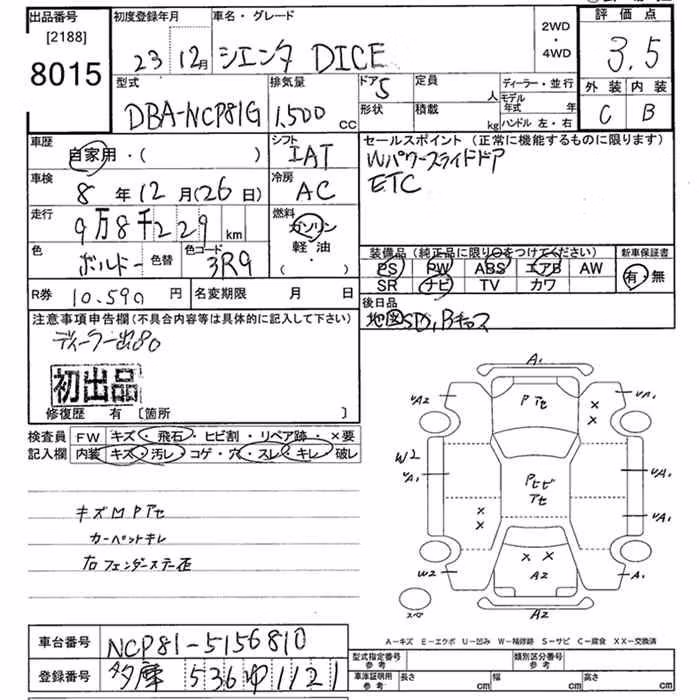 出品番号
[2188]
8015
初度登録年月
23 12月
車名・グレード
シエンタ DICE
2WD
・
4WD
評価点
3.5
外装 内装
C B
型式
DBA-NCP81G
排気量
1,500 cc
ドア 5
形状
定員 人
積載 kg
ディーラー・並行
モデル年式 年
ハンドル 左・右
車歴
自家用・( )
シフト
IAT
セールスポイント (正常に機能するものに限ります)
Wパワースライドドア
ETC
車検
8年12月(26日)
冷房
AC
走行
9万8千229km
燃料
ガソリン
軽油
( )
色
ボルドー
色替
色コード
3R9
装備品 (純正品に限り○をつけてください)
PS PW ABS エアB AW
SR ナビ TV カワ
新車保証書
有・無
R券 10.590円
名変期限 月 日
後日品
地図SD,
注意事項申告欄(不具合内容等は具体的に記入して下さい)
初出品
修復歴 有 〔箇所 〕
検査員 FW キズ・飛石・ヒビ割・リペア跡・×要
記入欄 内装 キズ・汚レ・コゲ・穴・スレ・キレ・破レ
キズMPアセ
カーペットキレ
右フェンダーステー歪
A1
UA2
P アセ
×
×
UA1
W2
UA1
Pヒビ
アセ
UA1
×
×
UA1
× ×
W2
A2
A1
スペ
A2
A−キズ E−エクボ U−凹み W−補修跡 S−サビ C−腐食 XX−交換済
車台番号 NCP81-5156810
登録番号 多摩 536 ゆ 1121
型式指定番号
参考
類別区分番号
参考
車庫証明用
参考
長さ cm
幅 cm
高さ cm